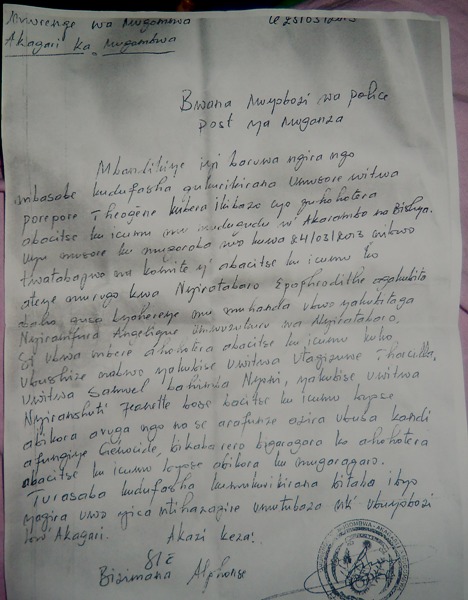 Murenge wa Mugombwa
Le 25/03/2013
Akagari ka Mugombwa
Bwana Muyobozi wa police
post ya Muganza
Mbandikiye iyi baruwa ngira ngo
mbasabe kudufasha gukurikirana umusore witwa
porepore Theogène kubera ikibazo cyo guhohotera
abacitse ku icumu mu mudugudu w' Akarambo na Bishya.
Uyu musore ku mugoroba wo kuwa 24/03/2013 nibwo
twatabajwe na komite y' abacitse ku icumu ko
ateye murugo kwa Nyirataboro Epaphrodithe
mu muhanda ubwo yakubitaga
Nyiramfura Angelique umwuzukuru wa Nyirataboro.
Si ubwa mbere ahohotera abacitse ku icumu kuko
ubushize nabwo yakubise uwitwa Utagizumwe Tharcilla,
uwitwa Samuel yakubise uwitwa
Nyiranshuti Jeanette bose bacitse ku icumu byose
abikora avuga ngo na se arafunze azira ubusa kandi
afungiye Génocide, bikaba rero bigaragara ko ahohotera
abacitse ku icumu byose abikora ku mugaragaro.
Turasaba kudufasha kumukurikirana bitaba ibyo
yagira uwo yica ntihazagire umutubaza nk' ubuyobozi
bw' Akagari.
Akazi keza!
S/E
Bizimana Alphonse